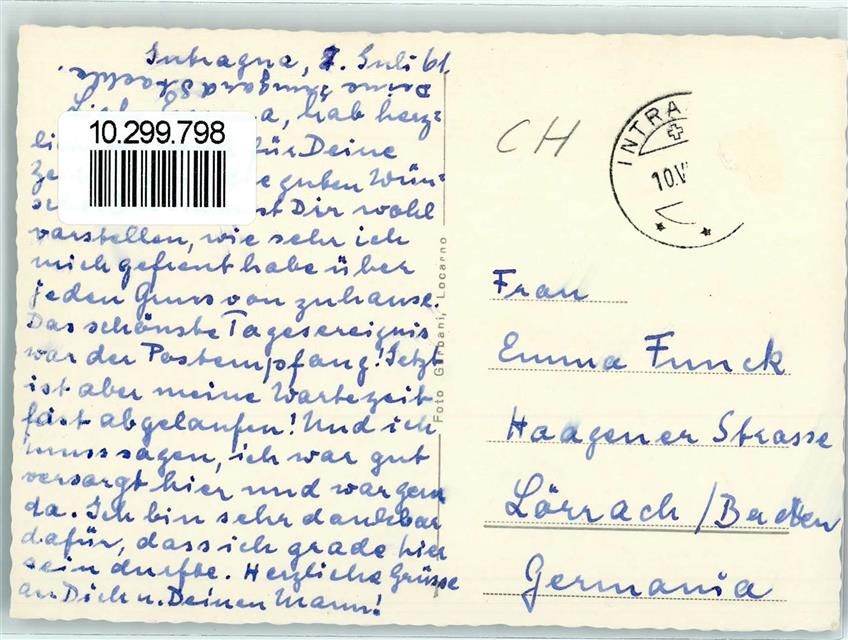 Intragna, 7. Juli 61.
Deine
a, hab herz-
für Deine
guten Wün-
st Dir wohl
vorstellen, wie sehr ich
mich gefreut habe über
jeden Gruss von zuhause.
Das schönste Tagesereignis
war der Postempfang! Jetzt
ist aber meine Wartezeit
fast abgelaufen! Und ich
muss sagen, ich war gut
versorgt hier und war gern
da. Ich bin sehr dankbar
dafür, dass ich grade hier
sein durfte. Herzliche Grüsse
an Dich u. Deinen Mann!
10.299.798
Foto Garbani, Locarno
CH
INTRA
10.V
Frau
Emma Funck
Haagener Strasse
Lörrach / Baden
Germania